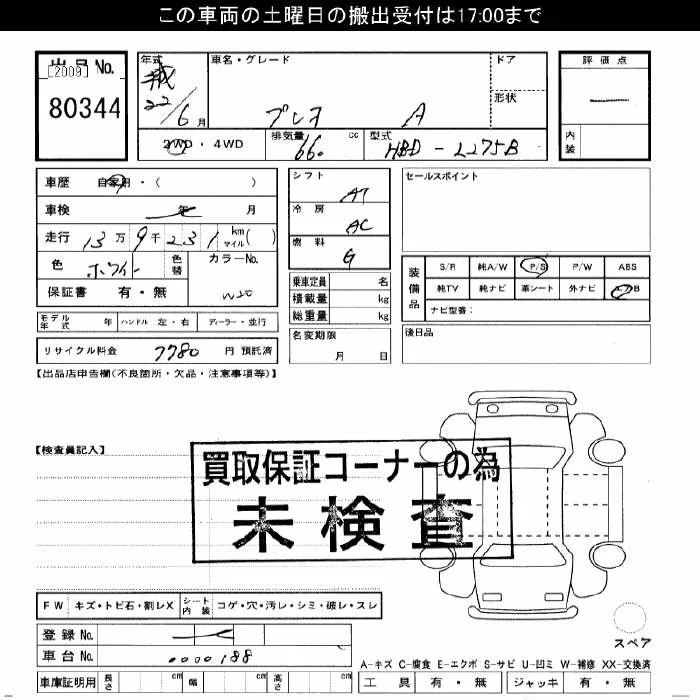 この車両の土曜日の搬出受付は17:00まで
出品No.
[2009]
80344
年式
22/6月
車名・グレード
プレオ A
ドア
形状
2WD・4WD
排気量 660 cc
型式 HBD-L275B
評価点
内装
車歴 自家用・( )
車検 年 月
走行 13万9千231 km マイル( )
色 ホワイト 色替
カラーNo. W20
保証書 有・無
シフト AT
冷房 AC
燃料 G
乗車定員 名
積載量 kg
総重量 kg
名変期限
月 日
セールスポイント
装備品
S/R 純A/W P/S P/W ABS
純TV 純ナビ 革シート 外ナビ エアB
ナビ型番:
後日品
モデル年式 年 ハンドル 左・右 ディーラー・並行
リサイクル料金 7780 円 預託済
【出品店申告欄(不良箇所・欠品・注意事項等)】
【検査員記入】
買取保証コーナーの為
未検査
FW キズ・トビ石・割レX シート内装 コゲ・穴・汚レ・シミ・破レ・スレ
登録No.
車台No. 0000188
スペア
A-キズ C-腐食 E-エクボ S-サビ U-凹ミ W-補修 XX-交換済
車庫証明用 長さ cm 幅 cm 高さ cm
工具 有・無 ジャッキ 有・無